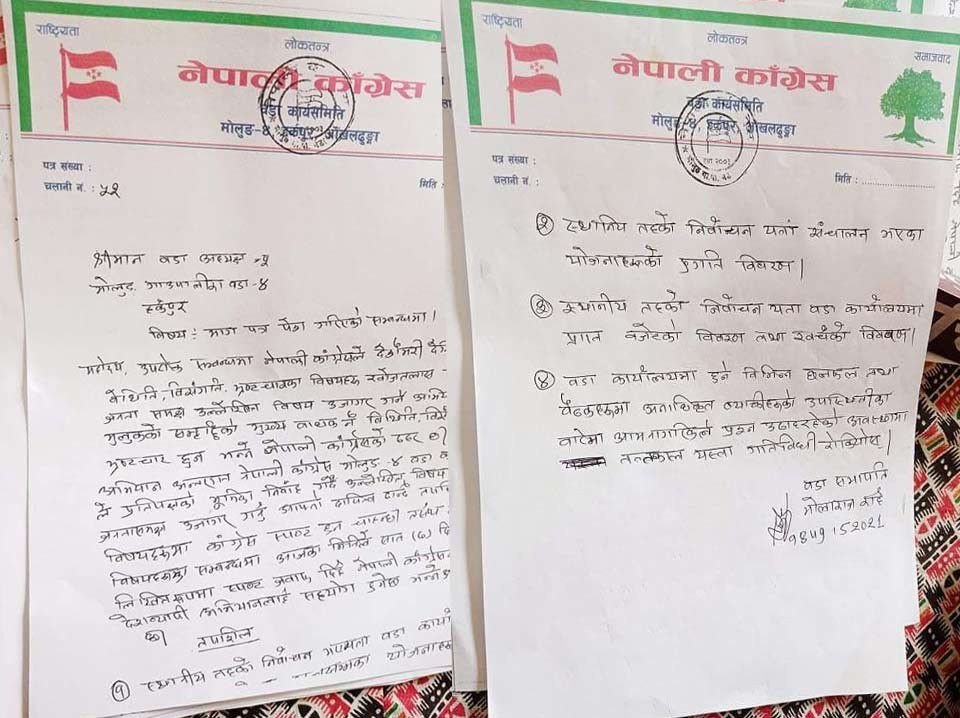 राष्ट्रियता
लोकतन्त्र
नेपाली काँग्रेस
वडा कार्यसमिति
मोलुङ-४, हर्कपुर, ओखलढुङ्गा
पत्र संख्या :
चलानी नं. : ५२
मिति :
श्रीमान वडा अध्यक्ष ज्यू
मोलुङ गाउपालीका वडा-४
हर्कपुर
विषय : माग पत्र पेश गरिएको सम्बन्धमा।
महोदय, उपरोक्त सम्बन्धमा नेपाली कांग्रेसले देशैभरी
बेथिति, विसंगति, भ्रष्टाचारका विषयहरु खोजतलास
जनता समक्ष उल्लेखित विषय उजागर गर्ने
मुलुकको समृद्दिको मुख्य बाधक नै बेथिति,
भ्रष्टाचार हुन भन्ने नेपाली कांग्रेसको ठहर छ।
अभियान अन्तरगत नेपाली कांग्रेस मोलुङ-४ वडा
ले प्रतिपक्षको भूमिका निर्वाह गर्दै उल्लेखित विषय
जनतासमक्ष उजागर गर्नु आफ्नो दायित्व ठान्दै
विषयहरुमा कांग्रेस स्पष्ट हुन चाहन्छौ
विषयहरुका सम्बन्धमा आजका मितिले सात (७)
लिखितरुपमा स्पष्ट जवाफ दिई नेपाली कांग्रेस
देशव्यापी अभियानलाई सहयोग हुनेछ भन्ने
छ।
तपशिल
१ स्थानीय तहको निर्वाचन वडा
योजनाहरु
राष्ट्रियता
लोकतन्त्र
समाजवाद
नेपाली काँग्रेस
वडा कार्यसमिति
मोलुङ-४, हर्कपुर, ओखलढुङ्गा
पत्र संख्या :
चलानी नं. :
मिति :
२ स्थानिय तहको निर्वाचन यता संचालन भएका
योजनाहरुको प्रगति विवरण।
३ स्थानीय तहको निर्वाचन यता वडा कार्यालयमा
प्राप्त बजेटको विवरण तथा खर्चको विवरण।
४ वडा कार्यालयमा हुने विभिन्न छलफल तथा
बैठकहरुमा अनाधिकृत ब्यक्तीहरुको उपस्थितीका
बारेमा आमनागरिकले प्रश्न उठाइरहेको अवस्थामा
तत्काल यस्ता गतिविधी रोकियोस्।
वडा सभापति
भोलाराज राई